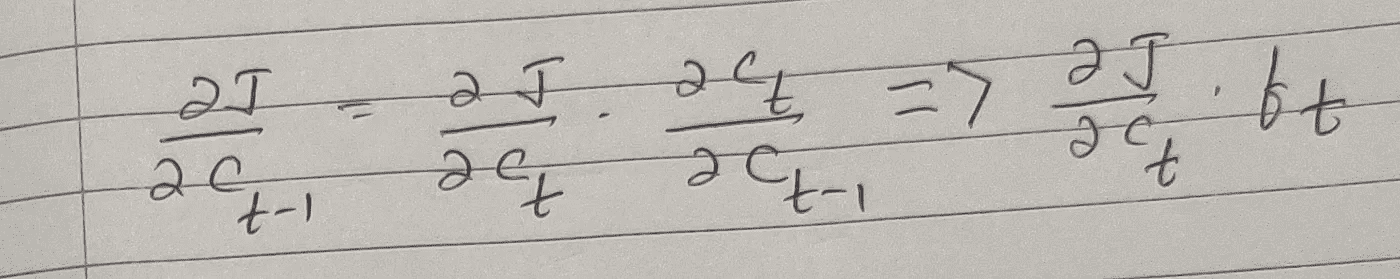 ∂J/∂C_{t-1} = ∂J/∂C_t · ∂C_t/∂C_{t-1} => ∂J/∂C_t · f_t